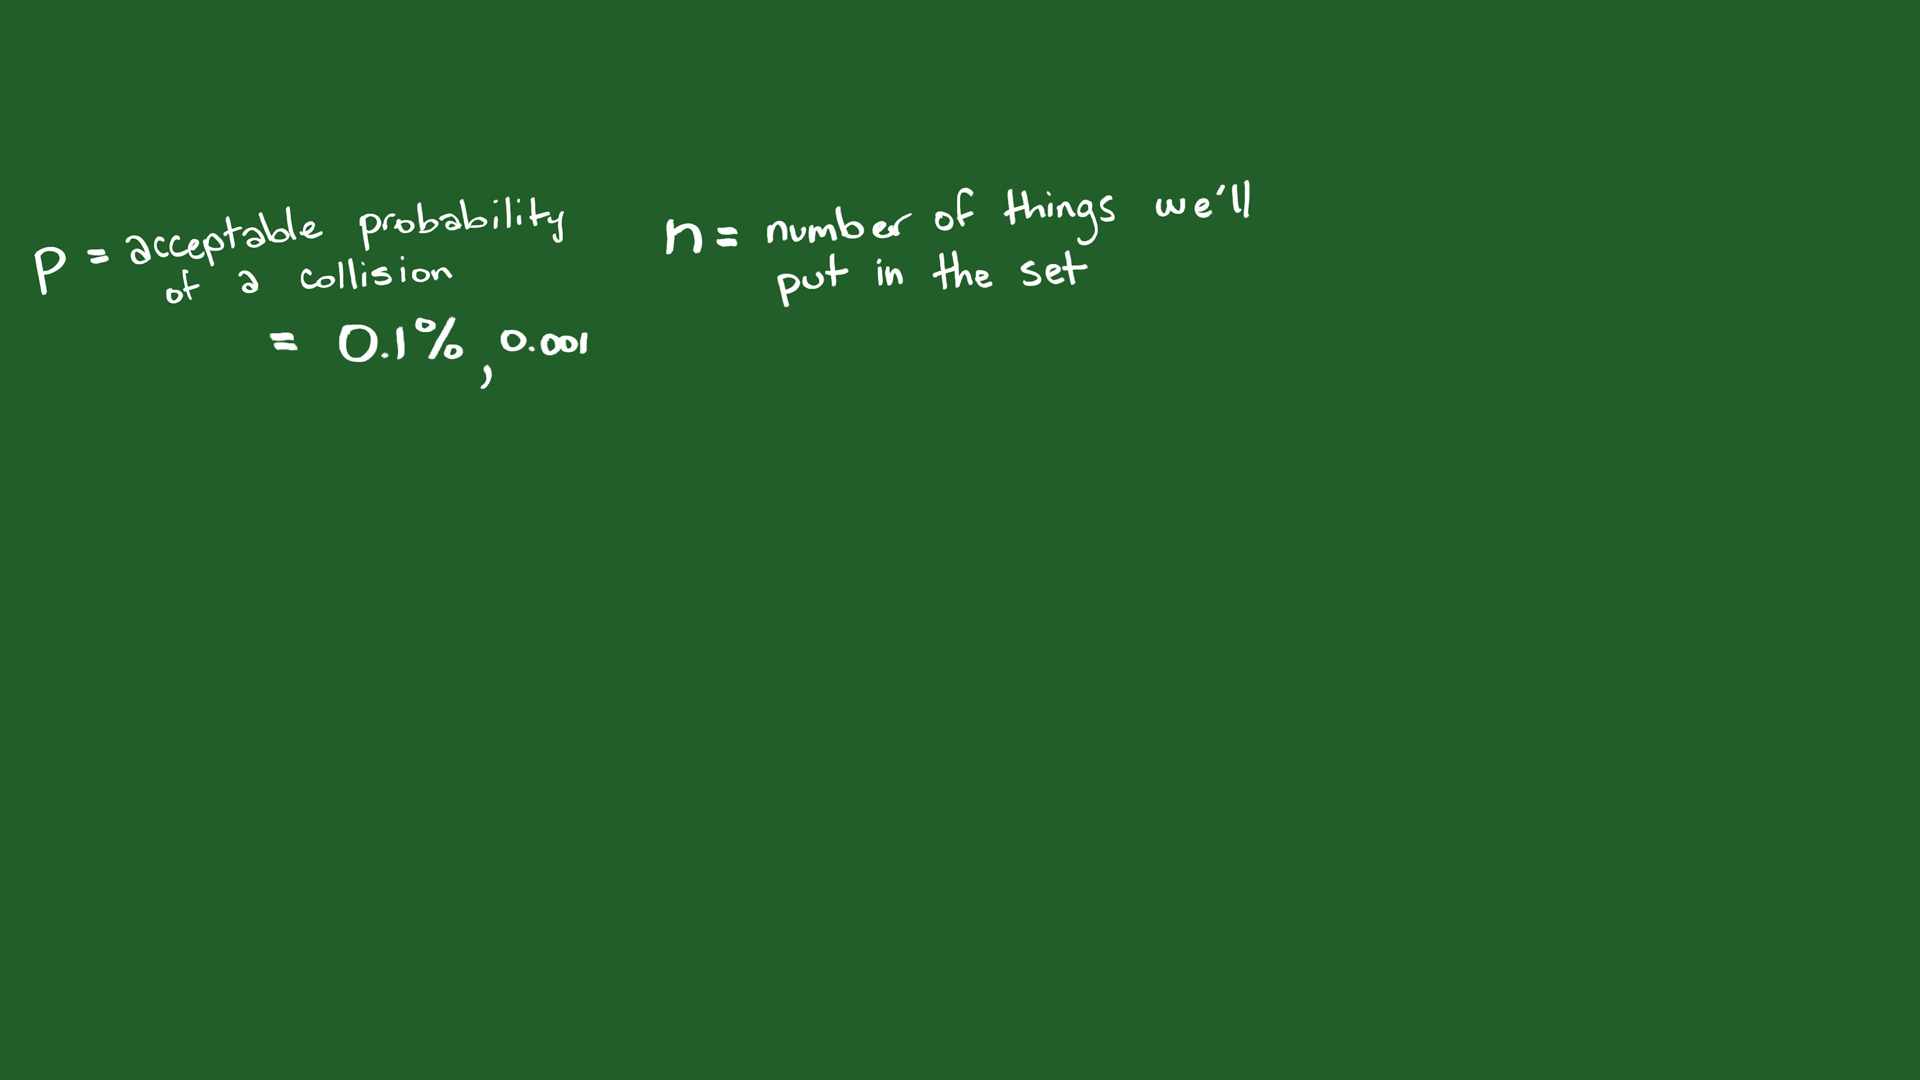 P = acceptable probability
of a collision
= 0.1%, 0.001
n = number of things we'll
put in the set